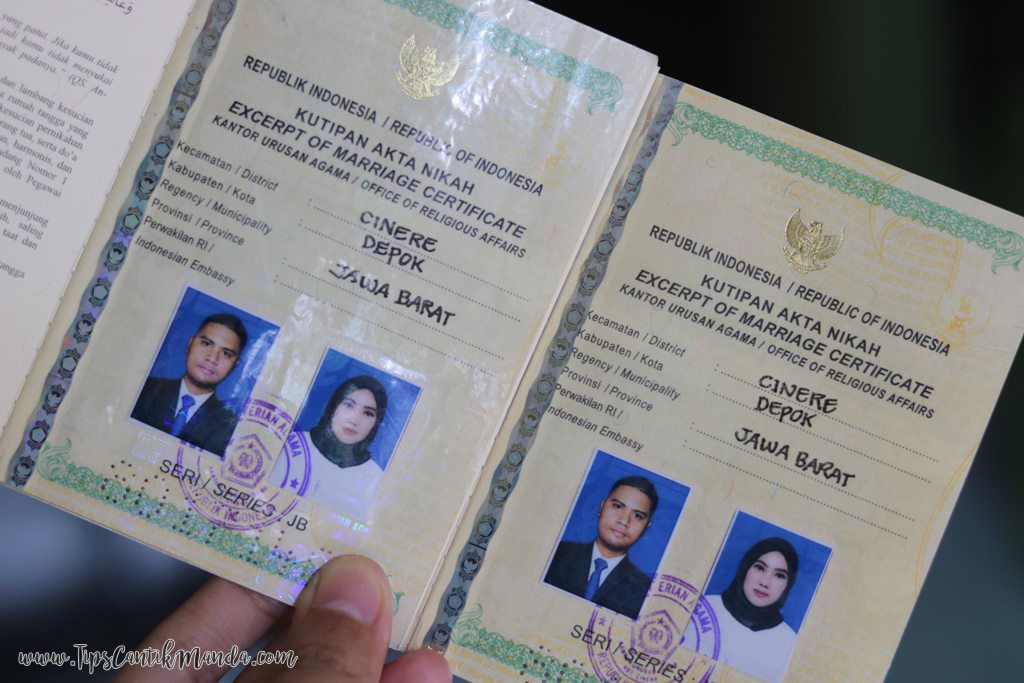 yang patut. Jika kamu tidak
jadi kamu tidak menyukai
padanya." (QS. An-
dan lambang kesucian
a rumah tangga yang
kesucian pernikahan
rang tua, serta do'a
n, harmonis, dan
dang Nomor 1
oleh Pegawai
menjunjung
ih, saling
taat dan
tangga
REPUBLIK INDONESIA / REPUBLIC OF INDONESIA
KUTIPAN AKTA NIKAH
EXCERPT OF MARRIAGE CERTIFICATE
KANTOR URUSAN AGAMA / OFFICE OF RELIGIOUS AFFAIRS
Kecamatan / District : CINERE
Kabupaten / Kota DEPOK
Regency / Municipality
Provinsi / Province JAWA BARAT
Perwakilan RI /
Indonesian Embassy
ERIAN AGAMA
REPUBLIK INDONE
SERI / SERIES : JB
REPUBLIK INDONESIA / REPUBLIC OF INDONESIA
KUTIPAN AKTA NIKAH
EXCERPT OF MARRIAGE CERTIFICATE
KANTOR URUSAN AGAMA / OFFICE OF RELIGIOUS AFFAIRS
Kecamatan / District : CINERE
Kabupaten / Kota DEPOK
Regency / Municipality
Provinsi / Province JAWA BARAT
Perwakilan RI /
Indonesian Embassy
ERIAN AGAMA
SERI / SERIES :
www.TipsCantikManda.com